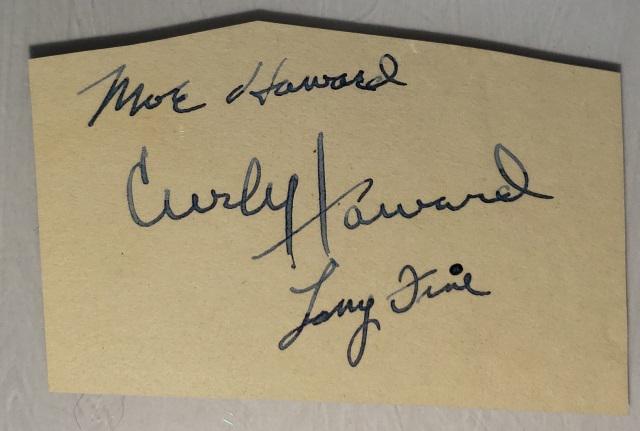 Moe Howard
Curly Howard
Larry Fine